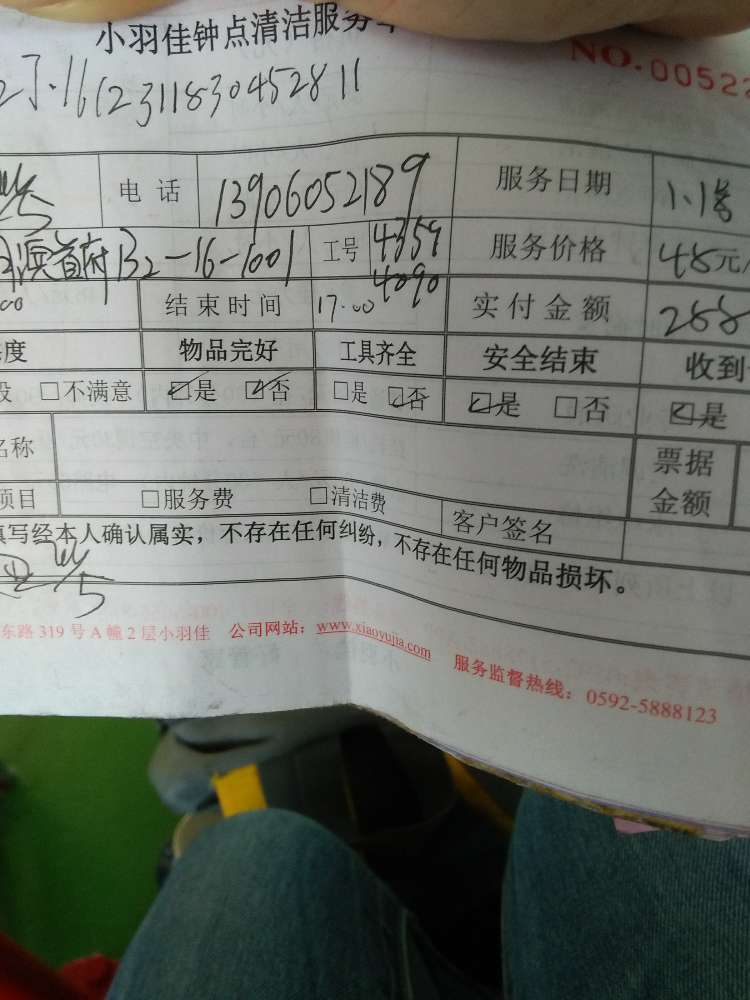 小羽佳钟点清洁服务单
NO.00522
16123118304452811
电话 13906052189 服务日期 1.1号
首府B2-16-1001 工号 4359 4090 服务价格 48元/
00 结束时间 17.00 实付金额 288
度 物品完好 工具齐全 安全结束 收到
□不满意 ☑是 ☑否 □是 ☑否 ☑是 □否 ☑是
名称 票据金额
项目 □服务费 □清洁费 客户签名
填写经本人确认属实，不存在任何纠纷，不存在任何物品损坏。
东路 319 号 A 幢 2 层小羽佳 公司网站：www.xiaoyujia.com 服务监督热线：0592-5888123